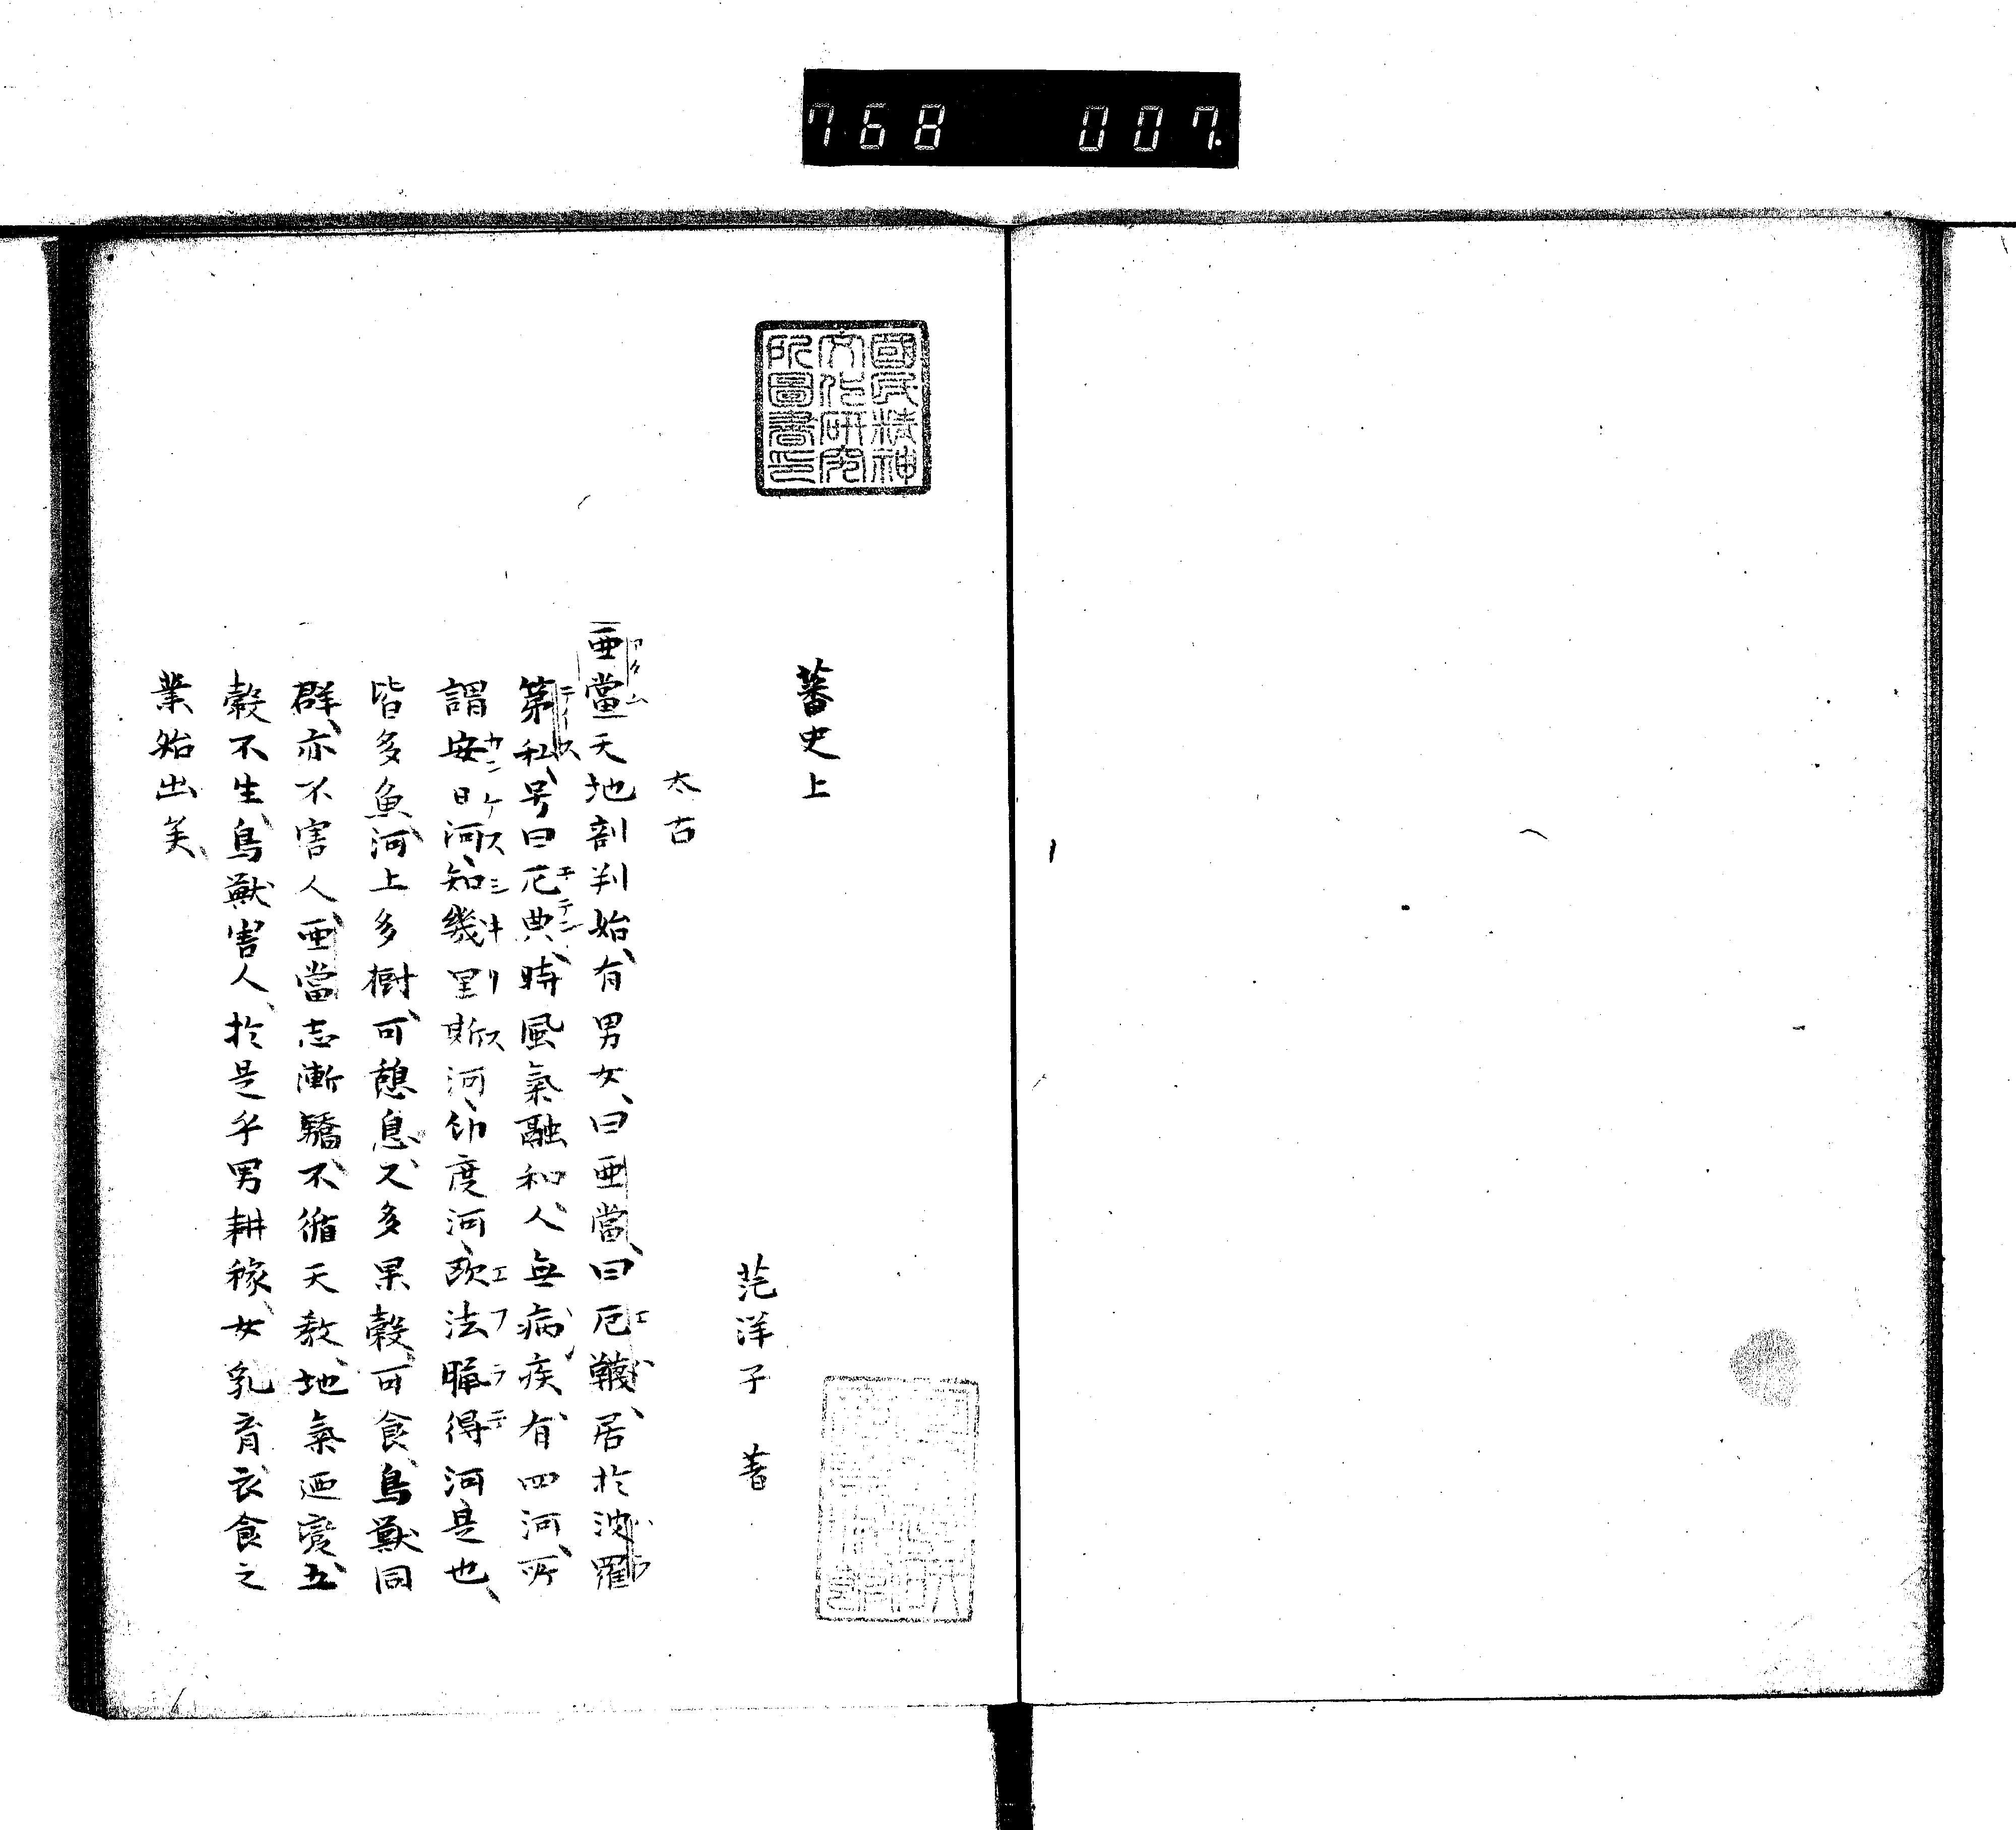 768 007.
國民精神
文化研究
所圖書印
蕃史上
茫洋子 著
太古
亜當天地剖判始、有男女、曰亜當、曰厄韈、居於波羅
第私、号曰厄典、時風氣融和、人無病疾、有四河、所
謂安日河、知幾里斯河、印度河、欧法臘得河是也、
皆多魚、河上多樹、可憩息、又多果穀、可食、鳥獣同
群、亦不害人、亜當志漸驕、不循天教、地氣迺変、五
穀不生、鳥獣害人、於是乎男耕稼、女乳育、衣食之
業始出矣、